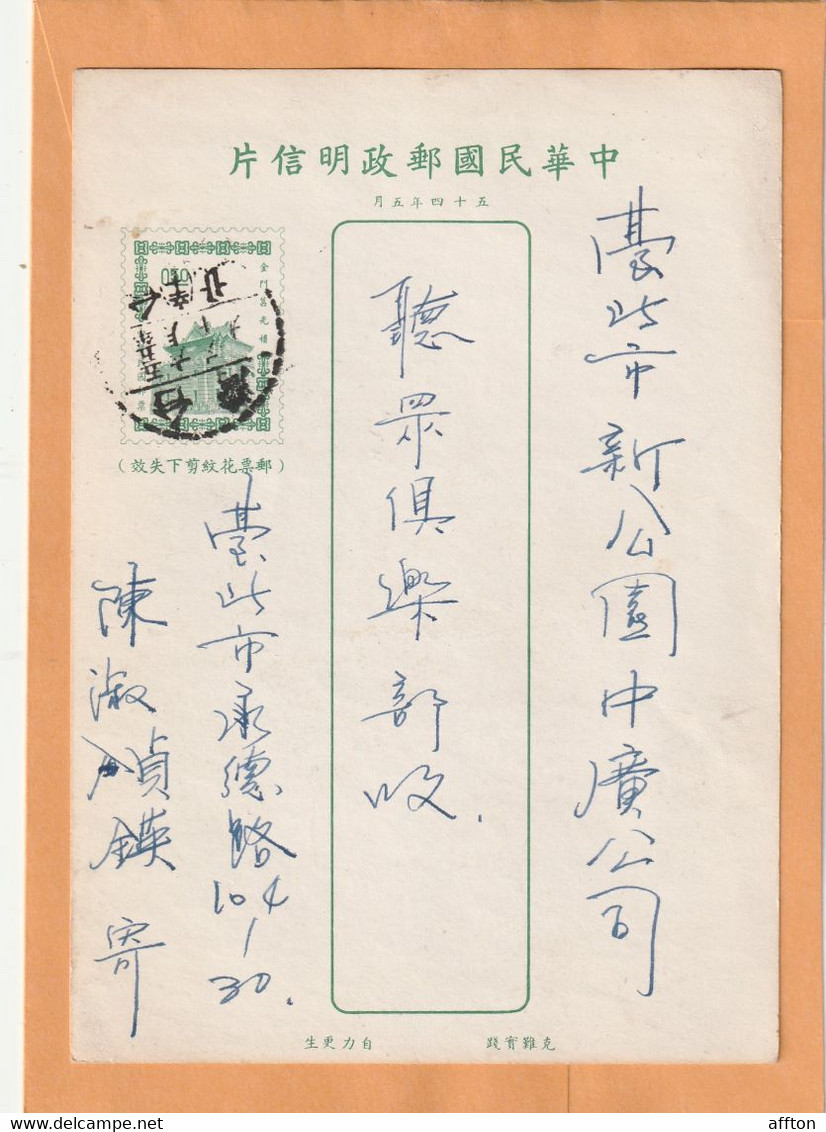 中華民國郵政明信片
五十四年五月
臺北市新公園中廣公司
聽眾俱樂部收.
0.50
金門莒光樓
(郵票花紋剪下失效)
臺北市承德路104/30.
陳淑貞鍈寄
克難實踐
自力更生
affton